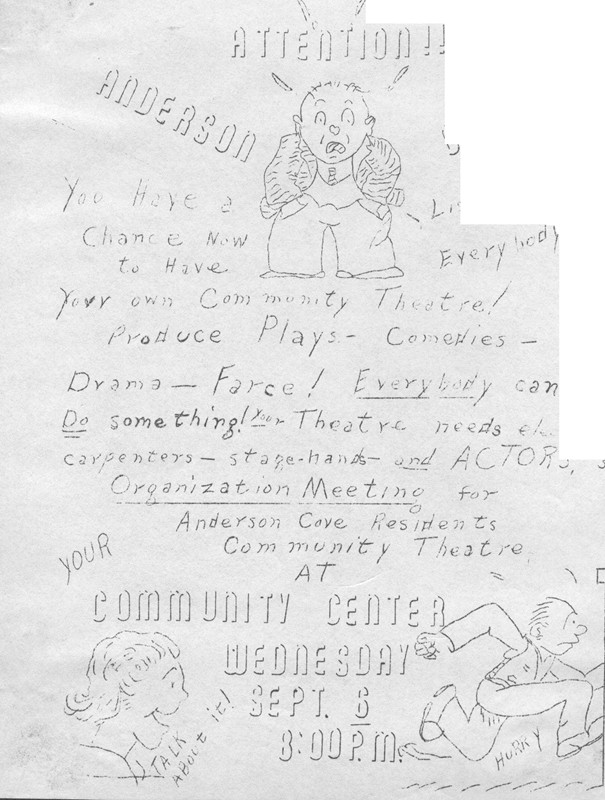 ATTENTION!!
ANDERSON
You Have a
Chance Now
to Have
Everybody
Your own Community Theatre!
Produce Plays - Comedies -
Drama - Farce! Everybody can
Do something! Your Theatre needs
carpenters - stage-hands - and ACTORS,
Organization Meeting for
Anderson Cove Residents
Community Theatre
AT
YOUR
COMMUNITY CENTER
WEDNESDAY
SEPT. 6
8:00 P.M.
TALK
ABOUT it!
HURRY